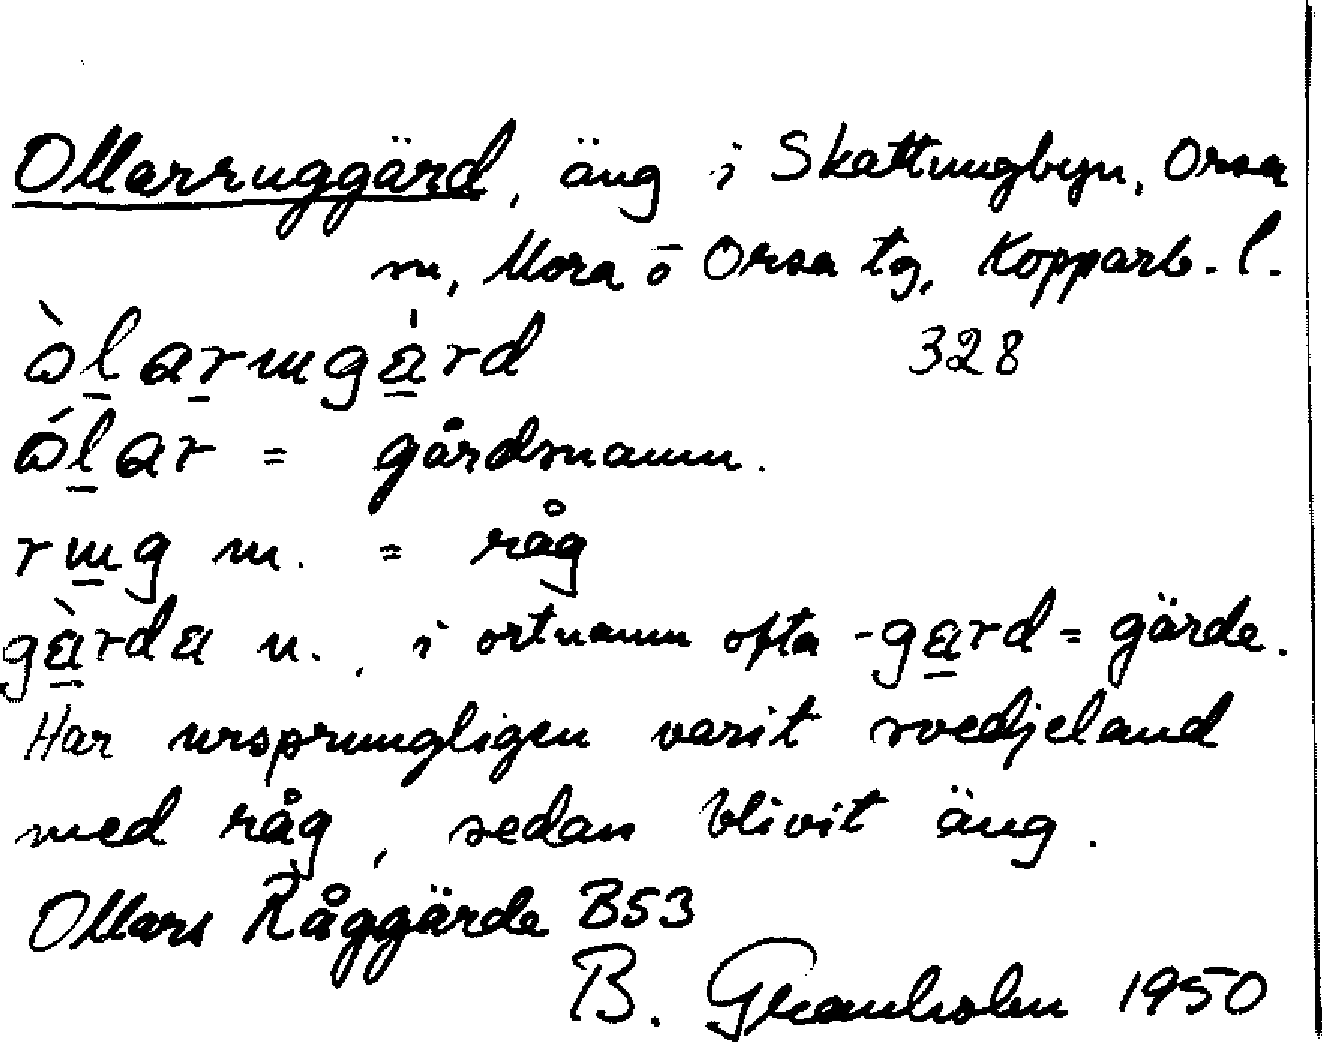 Ollarruggärd, äng i Skattungbyn, Orsa
sn, Mora o Orsa tg, Kopparb. l.
òlarɯgård 328
ólar = gårdsnamn.
rɯg m. = råg
gàrda n., i ortnamn ofta -gard = gärde.
Har ursprungligen varit svedjeland
med råg, sedan blivit äng.
Ollars Råggärde B53
B. Granholm 1950